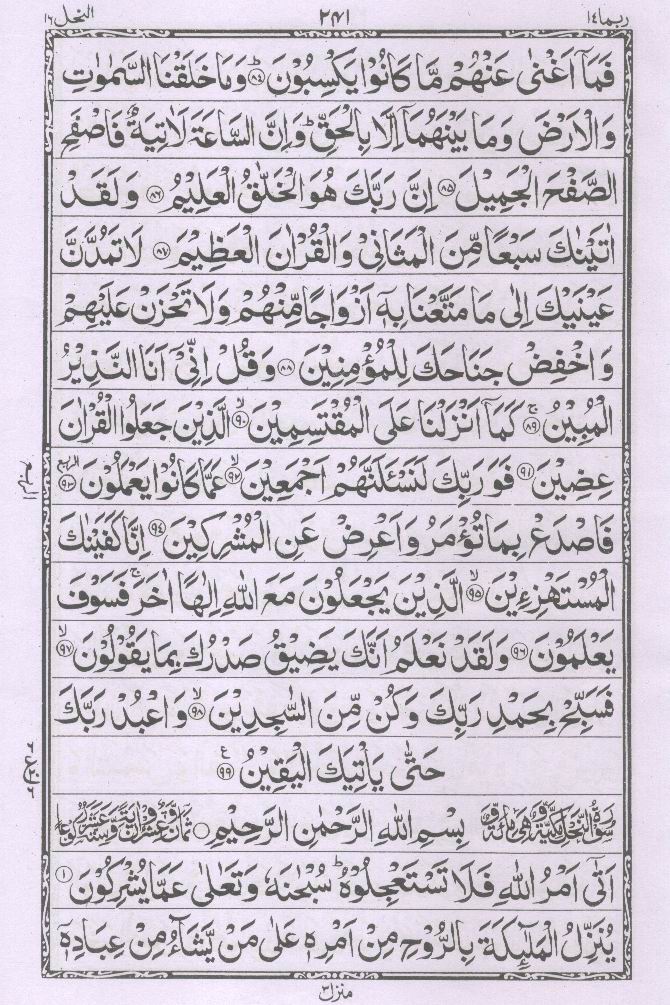 ربما ١٤ ٢٤١ النحل ١٦
فَمَاۤ اَغْنٰى عَنْهُمْ مَّا كَانُوْا يَكْسِبُوْنَ ؕ ﴿٨٤﴾ وَمَا خَلَقْنَا السَّمٰوٰتِ
وَالْاَرْضَ وَمَا بَيْنَهُمَاۤ اِلَّا بِالْحَقِّ ؕ وَاِنَّ السَّاعَةَ لَاٰتِيَةٌ فَاصْفَحِ
الصَّفْحَ الْجَمِيْلَ ﴿٨٥﴾ اِنَّ رَبَّكَ هُوَ الْخَلّٰقُ الْعَلِيْمُ ﴿٨٦﴾ وَلَقَدْ
اٰتَيْنٰكَ سَبْعًا مِّنَ الْمَثَانِىْ وَالْقُرْاٰنَ الْعَظِيْمَ ﴿٨٧﴾ لَا تَمُدَّنَّ
عَيْنَيْكَ اِلٰى مَا مَتَّعْنَا بِهٖۤ اَزْوَاجًا مِّنْهُمْ وَلَا تَحْزَنْ عَلَيْهِمْ
وَاخْفِضْ جَنَاحَكَ لِلْمُؤْمِنِيْنَ ﴿٨٨﴾ وَقُلْ اِنِّىْۤ اَنَا النَّذِيْرُ
الْمُبِيْنُ ۚ ﴿٨٩﴾ كَمَاۤ اَنْزَلْنَا عَلَى الْمُقْتَسِمِيْنَ ۙ ﴿٩٠﴾ الَّذِيْنَ جَعَلُوا الْقُرْاٰنَ
عِضِيْنَ ﴿٩١﴾ فَوَرَبِّكَ لَنَسْـَٔلَنَّهُمْ اَجْمَعِيْنَ ۙ ﴿٩٢﴾ عَمَّا كَانُوْا يَعْمَلُوْنَ ﴿٩٣﴾
فَاصْدَعْ بِمَا تُؤْمَرُ وَاَعْرِضْ عَنِ الْمُشْرِكِيْنَ ﴿٩٤﴾ اِنَّا كَفَيْنٰكَ
الْمُسْتَهْزِءِيْنَ ۙ ﴿٩٥﴾ الَّذِيْنَ يَجْعَلُوْنَ مَعَ اللّٰهِ اِلٰهًا اٰخَرَ ۚ فَسَوْفَ
يَعْلَمُوْنَ ﴿٩٦﴾ وَلَقَدْ نَعْلَمُ اَنَّكَ يَضِيْقُ صَدْرُكَ بِمَا يَقُوْلُوْنَ ۙ ﴿٩٧﴾
فَسَبِّحْ بِحَمْدِ رَبِّكَ وَكُنْ مِّنَ السّٰجِدِيْنَ ۙ ﴿٩٨﴾ وَاعْبُدْ رَبَّكَ
حَتّٰى يَاْتِيَكَ الْيَقِيْنُ ﴿٩٩﴾ ع
بِسْمِ اللّٰهِ الرَّحْمٰنِ الرَّحِيْمِ
اَتٰۤى اَمْرُ اللّٰهِ فَلَا تَسْتَعْجِلُوْهُ ؕ سُبْحٰنَهٗ وَتَعٰلٰى عَمَّا يُشْرِكُوْنَ ﴿١﴾
يُنَزِّلُ الْمَلٰٓئِكَةَ بِالرُّوْحِ مِنْ اَمْرِهٖ عَلٰى مَنْ يَّشَآءُ مِنْ عِبَادِهٖۤ
منزل ٣